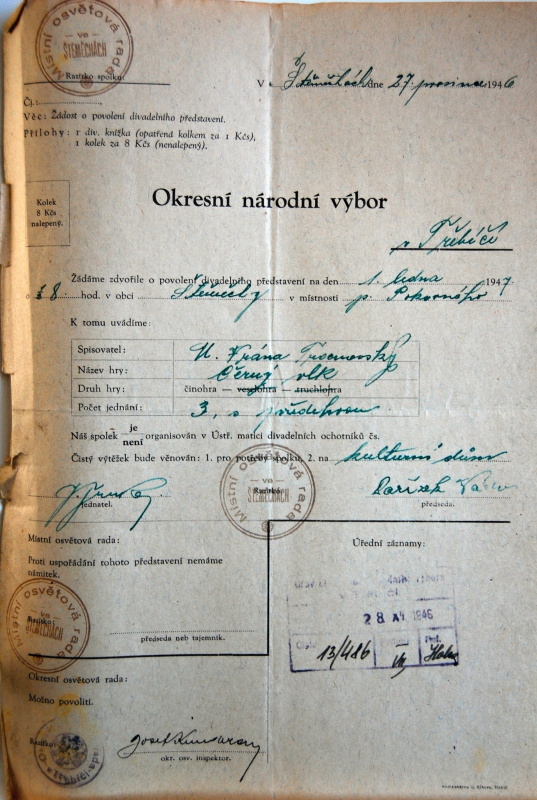 Místní osvětová rada
ve
ŠTĚMĚCHÁCH
Razítko spolku:
V e Štěměchách dne 27. prosince 1946
Čj.:
Věc: Žádost o povolení divadelního představení.
Přílohy: 1 div. knížka (opatřená kolkem za 1 Kčs),
1 kolek za 8 Kčs (nenalepený).
Kolek
8 Kčs
nalepený.
Okresní národní výbor
v Třebíči
Žádáme zdvořile o povolení divadelního představení na den 1. ledna 1947
o 8 hod. v obci Štěměchy v místnosti p. Pokorného
K tomu uvádíme:
Spisovatel: Vrána Trocnovský
Název hry: Černý vlk
Druh hry: činohra — veselohra — truchlohra
Počet jednání: 3, s předehrou
Náš spolek je
není organisován v Ústř. matici divadelních ochotníků čs.
Čistý výtěžek bude věnován: 1. pro potřeby spolku, 2. na kulturní dům
Místní osvětová rada
ve
ŠTĚMĚCHÁCH
Razítko
jednatel.
předseda.
Místní osvětová rada:
Proti uspořádání tohoto představení nemáme
námitek.
Místní osvětová rada
ve
ŠTĚMĚCHÁCH
Razítko:
předseda neb tajemník.
Úřední záznamy:
1946
13/486
Okresní osvětová rada:
Možno povoliti.
Razítko
Josef
okr. osv. inspektor.